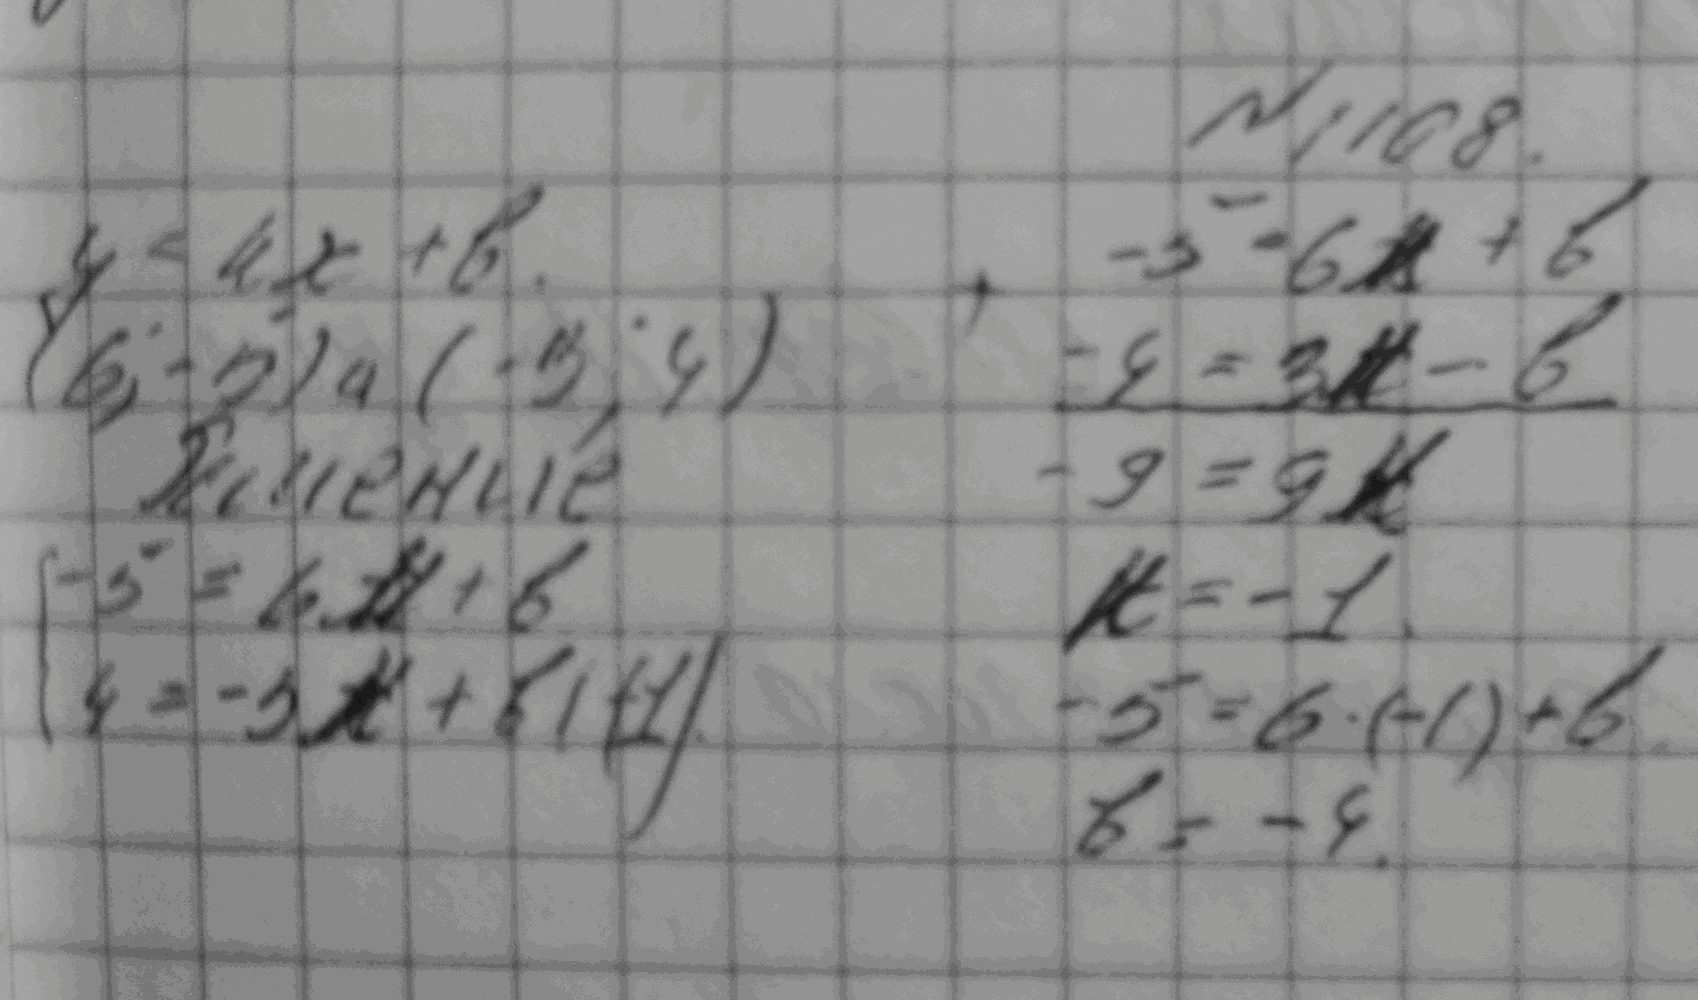 № 1168.
y = kx + b.
(6; -5) и (-3; 4)
Решение
-5 = 6k + b
4 = -3k + b | (-1)
-5 = 6k + b
+
-4 = 3k - b
-9 = 9k
k = -1.
-5 = 6·(-1) + b.
b = -4.